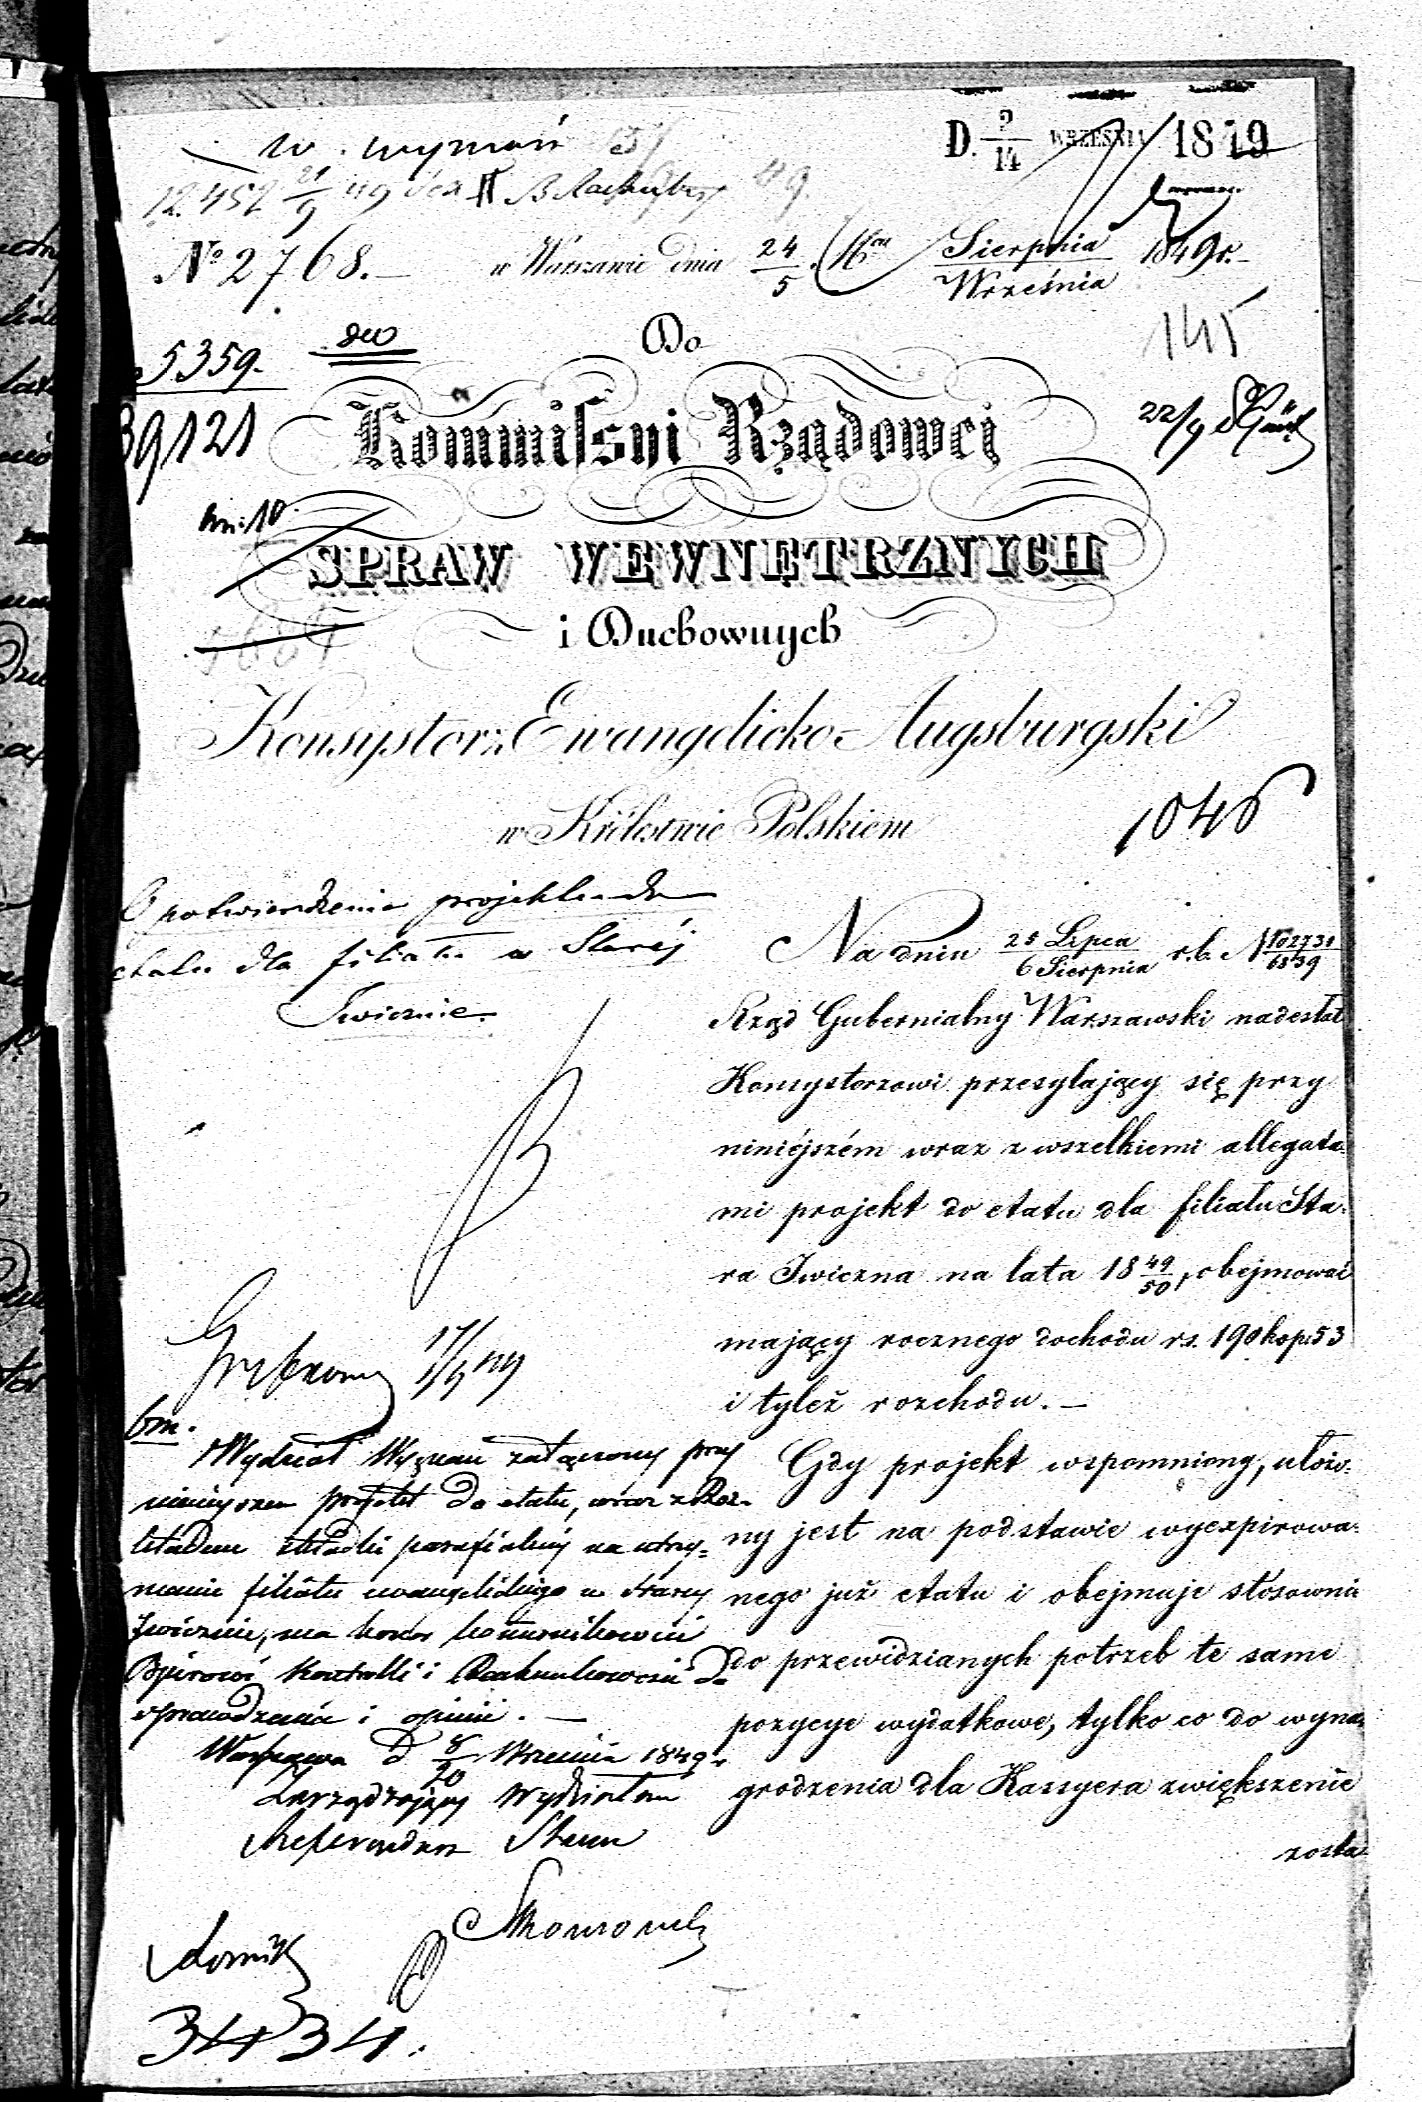 D. 2/14 WRZEŚNIA 1849
w. wyznań
12.452 21/9 49
№ 2768.— w Warszawie dnia 24/5 Sierpnia/Września 1849 r.
145
5359.
Do
39121
Kommissyi Rządowej
22/9
SPRAW WEWNĘTRZNYCH
i Duchownych
Konsystorz Ewangelicko-Augsburgski
w Królestwie Polskiem
1046
O potwierdzenie projektu do
etatu dla filiału w Starej
Iwicznie.
Na dniu 25 Lipca/6 Sierpnia r.b. № 102731/6839
Rząd Gubernialny Warszawski nadesłał
Konsystorzowi przesyłający się przy
niniéjszém wraz z wszelkiemi allegata-
mi projekt do etatu dla filiału Sta-
ra Iwiczna na lata 18 49/50, obejmować
mający rocznego dochodu rs. 190 kop. 53
i tyleż rozchodu.—
Gdy projekt wspomniony, ułożo-
ny jest na podstawie wyexpirowa-
nego już etatu i obejmuje stosownie
do przewidzianych potrzeb te same
pozycye wydatkowe, tylko co do wyna-
grodzenia dla Kassyera zwiększenie
zosta-
17/9 49
Wydział Wyznań załączony przy
niniejszem projekt do etatu, wraz z Roz-
kładem składki parafialnej na utrzy-
manie filiału ewangelickiego w Starej
Iwicznie, ma honor kommunikować
Biurowi Kontrolli i Rachunkowości do
sprawdzenia i opinii.—
Warszawa d 8/20 Września 1849 r.
Zarządzający Wydziałem
Referendarz Stanu
3434.